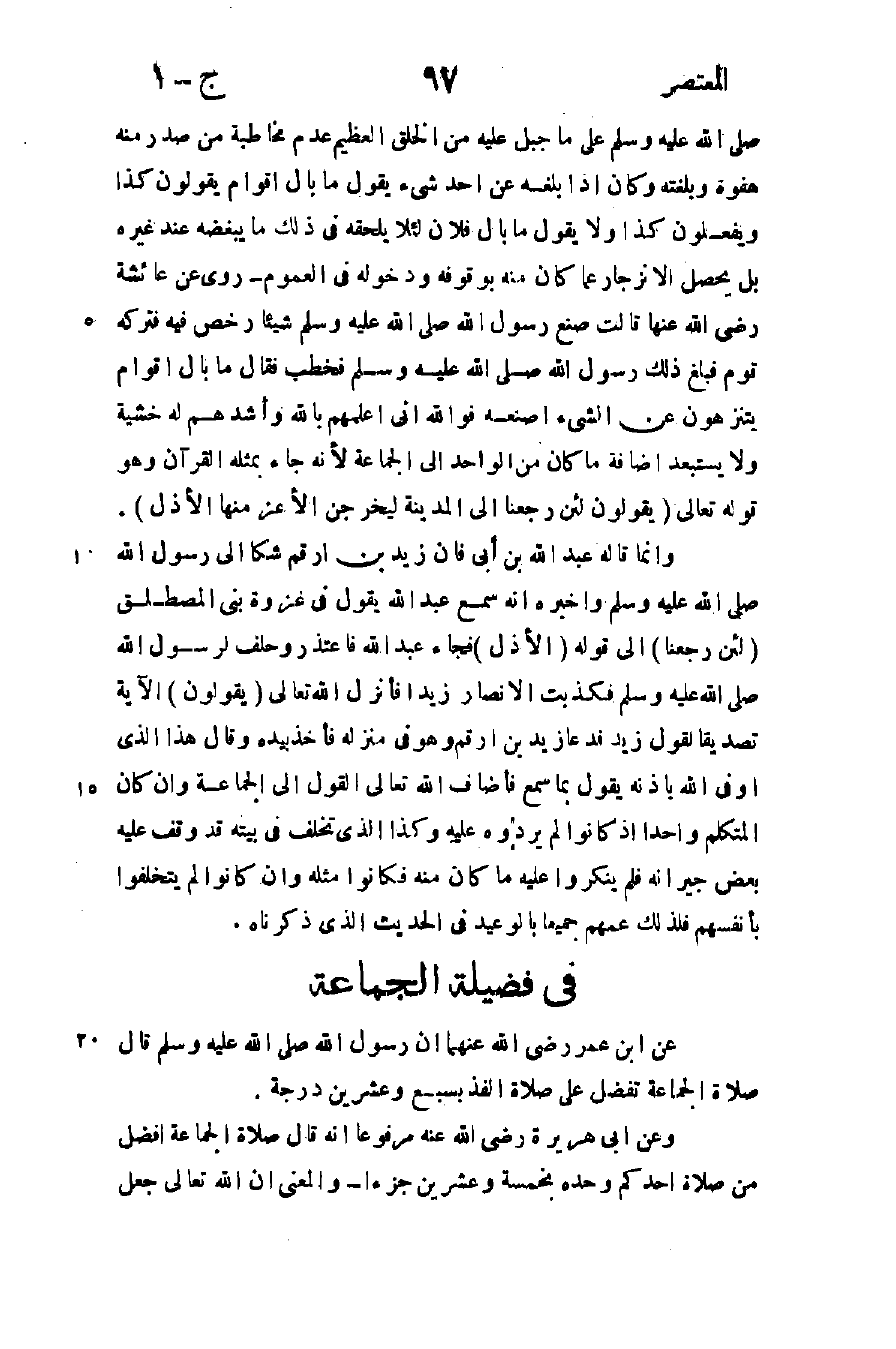 المعتصر ٩٧ ج – ١
صلى الله عليه وسلم على ما جبل عليه من الخلق العظيم عدم مخاطبة من صدر منه
هفوة وبلغته وكان اذا بلغه عن احد شىء يقول ما بال اقوام يقولون كذا
ويفعلون كذا ولا يقول ما بال فلان لئلا يلحقه فى ذلك ما يبغضه عند غيره
بل يحصل الانزجار عما كان منه بوقوفه ودخوله فى العموم – روى عن عائشة
رضى الله عنها قالت صنع رسول الله صلى الله عليه وسلم شيئا رخص فيه فتركه ٥
قوم فبلغ ذلك رسول الله صلى الله عليه وسلم فخطب فقال ما بال اقوام
يتنزهون عن الشىء اصنعه فوالله انى اعلمهم بالله وأشدهم له خشية
ولا يستبعد اضافة ما كان من الواحد الى الجماعة لأنه جاء بمثله القرآن وهو
قوله تعالى ( يقولون لئن رجعنا الى المدينة ليخرجن الأعز منها الأذل ) .
وانما قاله عبد الله بن أبى فان زيد بن ارقم شكا الى رسول الله ١٠
صلى الله عليه وسلم واخبره انه سمع عبد الله يقول فى غزوة بنى المصطلق
( لئن رجعنا ) الى قوله ( الأذل ) فجاء عبد الله فاعتذر وحلف لرسول الله
صلى الله عليه وسلم فكذبت الانصار زيدا فأنزل الله تعالى ( يقولون ) الآية
تصديقا لقول زيد فدعا زيد بن ارقم وهو فى منزله فأخذ بيده وقال هذا الذى
اوفى الله باذنه يقول بما سمع فأضاف الله تعالى القول الى الجماعة وان كان ١٥
المتكلم واحدا اذ كانوا لم يردوه عليه وكذا الذى تخلف فى بيته قد وقف عليه
بعض جيرانه فلم ينكروا عليه ما كان منه فكانوا مثله وان كانوا لم يتخلفوا
بأنفسهم فلذلك عمهم جميعا بالوعيد فى الحديث الذى ذكرناه .
فى فضيلة الجماعة
عن ابن عمر رضى الله عنهما ان رسول الله صلى الله عليه وسلم قال ٢٠
صلاة الجماعة تفضل على صلاة الفذ بسبع وعشرين درجة .
وعن ابى هريرة رضى الله عنه مرفوعا انه قال صلاة الجماعة افضل
من صلاة احدكم وحده بخمسة وعشرين جزءا – والمعنى ان الله تعالى جعل